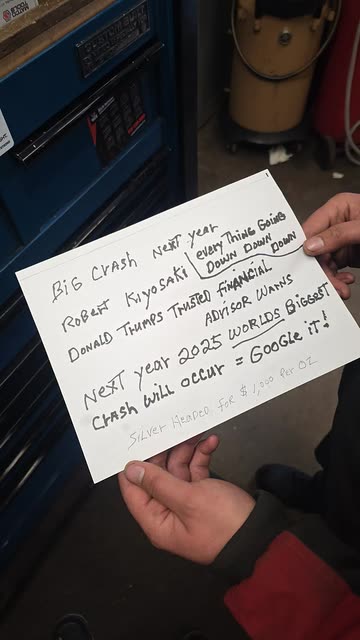 BIG CRASH NEXT YEAR
EVERYTHING GOING
DOWN DOWN DOWN
ROBERT KIYOSAKI
DONALD TRUMPS TRUSTED FINANCIAL
ADVISOR WARNS
NEXT YEAR 2025 WORLDS BIGGEST
CRASH WILL OCCUR = GOOGLE iT!
SILVER HEADED FOR $1,000 PER OZ